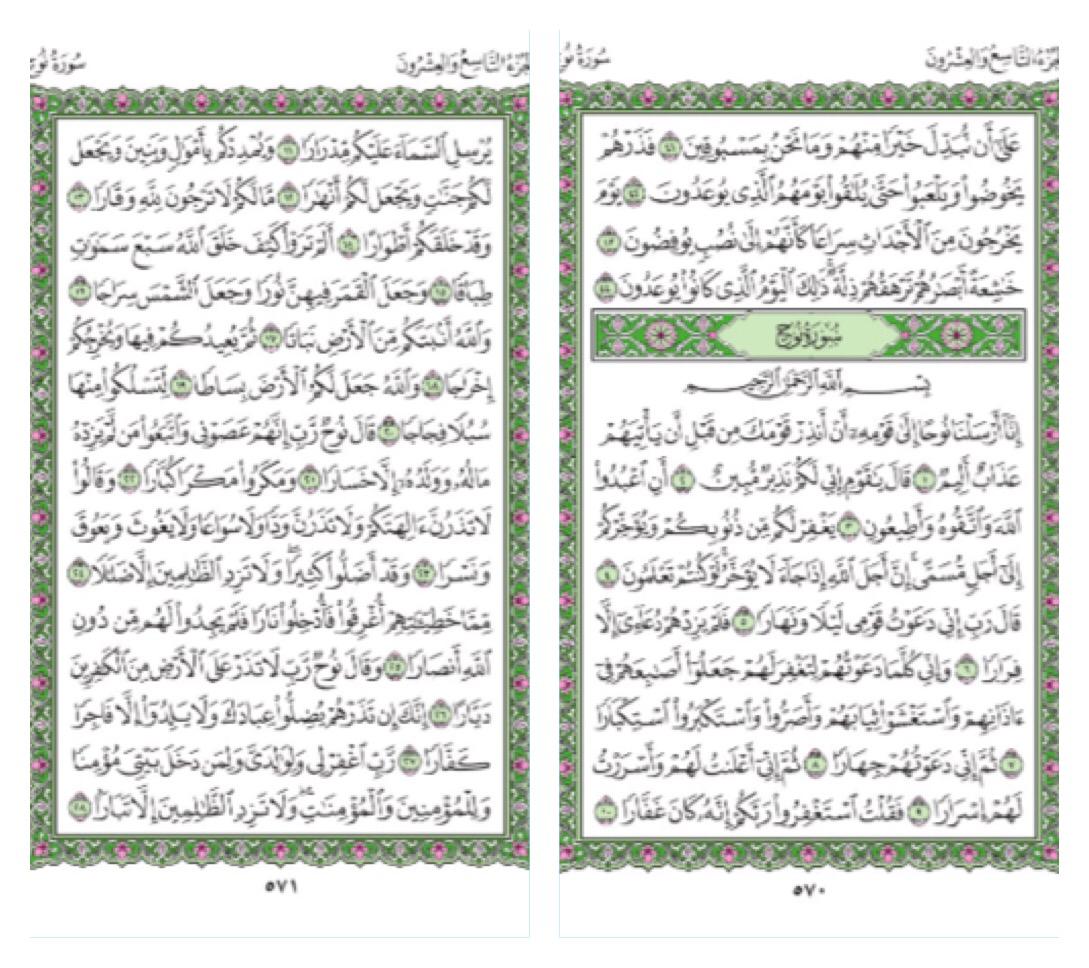 سُورَةُ نُوحٍ الجُزْءُ التَّاسِعُ وَالعِشْرُونَ
عَلَىٰٓ أَن نُّبَدِّلَ خَيْرًا مِّنْهُمْ وَمَا نَحْنُ بِمَسْبُوقِينَ ٤١ فَذَرْهُمْ
يَخُوضُوا۟ وَيَلْعَبُوا۟ حَتَّىٰ يُلَـٰقُوا۟ يَوْمَهُمُ ٱلَّذِى يُوعَدُونَ ٤٢ يَوْمَ
يَخْرُجُونَ مِنَ ٱلْأَجْدَاثِ سِرَاعًا كَأَنَّهُمْ إِلَىٰ نُصُبٍ يُوفِضُونَ ٤٣
خَـٰشِعَةً أَبْصَـٰرُهُمْ تَرْهَقُهُمْ ذِلَّةٌ ۚ ذَٰلِكَ ٱلْيَوْمُ ٱلَّذِى كَانُوا۟ يُوعَدُونَ ٤٤
سُورَةُ نُوحٍ
بِسْمِ ٱللَّهِ ٱلرَّحْمَـٰنِ ٱلرَّحِيمِ
إِنَّآ أَرْسَلْنَا نُوحًا إِلَىٰ قَوْمِهِۦٓ أَنْ أَنذِرْ قَوْمَكَ مِن قَبْلِ أَن يَأْتِيَهُمْ
عَذَابٌ أَلِيمٌ ١ قَالَ يَـٰقَوْمِ إِنِّى لَكُمْ نَذِيرٌ مُّبِينٌ ٢ أَنِ ٱعْبُدُوا۟
ٱللَّهَ وَٱتَّقُوهُ وَأَطِيعُونِ ٣ يَغْفِرْ لَكُم مِّن ذُنُوبِكُمْ وَيُؤَخِّرْكُمْ
إِلَىٰٓ أَجَلٍ مُّسَمًّى ۚ إِنَّ أَجَلَ ٱللَّهِ إِذَا جَآءَ لَا يُؤَخَّرُ ۖ لَوْ كُنتُمْ تَعْلَمُونَ ٤
قَالَ رَبِّ إِنِّى دَعَوْتُ قَوْمِى لَيْلًا وَنَهَارًا ٥ فَلَمْ يَزِدْهُمْ دُعَآءِىٓ إِلَّا
فِرَارًا ٦ وَإِنِّى كُلَّمَا دَعَوْتُهُمْ لِتَغْفِرَ لَهُمْ جَعَلُوٓا۟ أَصَـٰبِعَهُمْ فِىٓ
ءَاذَانِهِمْ وَٱسْتَغْشَوْا۟ ثِيَابَهُمْ وَأَصَرُّوا۟ وَٱسْتَكْبَرُوا۟ ٱسْتِكْبَارًا
٧ ثُمَّ إِنِّى دَعَوْتُهُمْ جِهَارًا ٨ ثُمَّ إِنِّىٓ أَعْلَنتُ لَهُمْ وَأَسْرَرْتُ
لَهُمْ إِسْرَارًا ٩ فَقُلْتُ ٱسْتَغْفِرُوا۟ رَبَّكُمْ إِنَّهُۥ كَانَ غَفَّارًا ١٠
٥٧٠
سُورَةُ نُوحٍ الجُزْءُ التَّاسِعُ وَالعِشْرُونَ
يُرْسِلِ ٱلسَّمَآءَ عَلَيْكُم مِّدْرَارًا ١١ وَيُمْدِدْكُم بِأَمْوَٰلٍ وَبَنِينَ وَيَجْعَل
لَّكُمْ جَنَّـٰتٍ وَيَجْعَل لَّكُمْ أَنْهَـٰرًا ١٢ مَّا لَكُمْ لَا تَرْجُونَ لِلَّهِ وَقَارًا ١٣
وَقَدْ خَلَقَكُمْ أَطْوَارًا ١٤ أَلَمْ تَرَوْا۟ كَيْفَ خَلَقَ ٱللَّهُ سَبْعَ سَمَـٰوَٰتٍ
طِبَاقًا ١٥ وَجَعَلَ ٱلْقَمَرَ فِيهِنَّ نُورًا وَجَعَلَ ٱلشَّمْسَ سِرَاجًا ١٦
وَٱللَّهُ أَنۢبَتَكُم مِّنَ ٱلْأَرْضِ نَبَاتًا ١٧ ثُمَّ يُعِيدُكُمْ فِيهَا وَيُخْرِجُكُمْ
إِخْرَاجًا ١٨ وَٱللَّهُ جَعَلَ لَكُمُ ٱلْأَرْضَ بِسَاطًا ١٩ لِّتَسْلُكُوا۟ مِنْهَا
سُبُلًا فِجَاجًا ٢٠ قَالَ نُوحٌ رَّبِّ إِنَّهُمْ عَصَوْنِى وَٱتَّبَعُوا۟ مَن لَّمْ يَزِدْهُ
مَالُهُۥ وَوَلَدُهُۥٓ إِلَّا خَسَارًا ٢١ وَمَكَرُوا۟ مَكْرًا كُبَّارًا ٢٢ وَقَالُوا۟
لَا تَذَرُنَّ ءَالِهَتَكُمْ وَلَا تَذَرُنَّ وَدًّا وَلَا سُوَاعًا وَلَا يَغُوثَ وَيَعُوقَ
وَنَسْرًا ٢٣ وَقَدْ أَضَلُّوا۟ كَثِيرًا ۖ وَلَا تَزِدِ ٱلظَّـٰلِمِينَ إِلَّا ضَلَـٰلًا ٢٤
مِّمَّا خَطِيٓـَٔـٰتِهِمْ أُغْرِقُوا۟ فَأُدْخِلُوا۟ نَارًا فَلَمْ يَجِدُوا۟ لَهُم مِّن دُونِ
ٱللَّهِ أَنصَارًا ٢٥ وَقَالَ نُوحٌ رَّبِّ لَا تَذَرْ عَلَى ٱلْأَرْضِ مِنَ ٱلْكَـٰفِرِينَ
دَيَّارًا ٢٦ إِنَّكَ إِن تَذَرْهُمْ يُضِلُّوا۟ عِبَادَكَ وَلَا يَلِدُوٓا۟ إِلَّا فَاجِرًا
كَفَّارًا ٢٧ رَّبِّ ٱغْفِرْ لِى وَلِوَٰلِدَىَّ وَلِمَن دَخَلَ بَيْتِىَ مُؤْمِنًا
وَلِلْمُؤْمِنِينَ وَٱلْمُؤْمِنَـٰتِ ۖ وَلَا تَزِدِ ٱلظَّـٰلِمِينَ إِلَّا تَبَارًۢا ٢٨
٥٧١